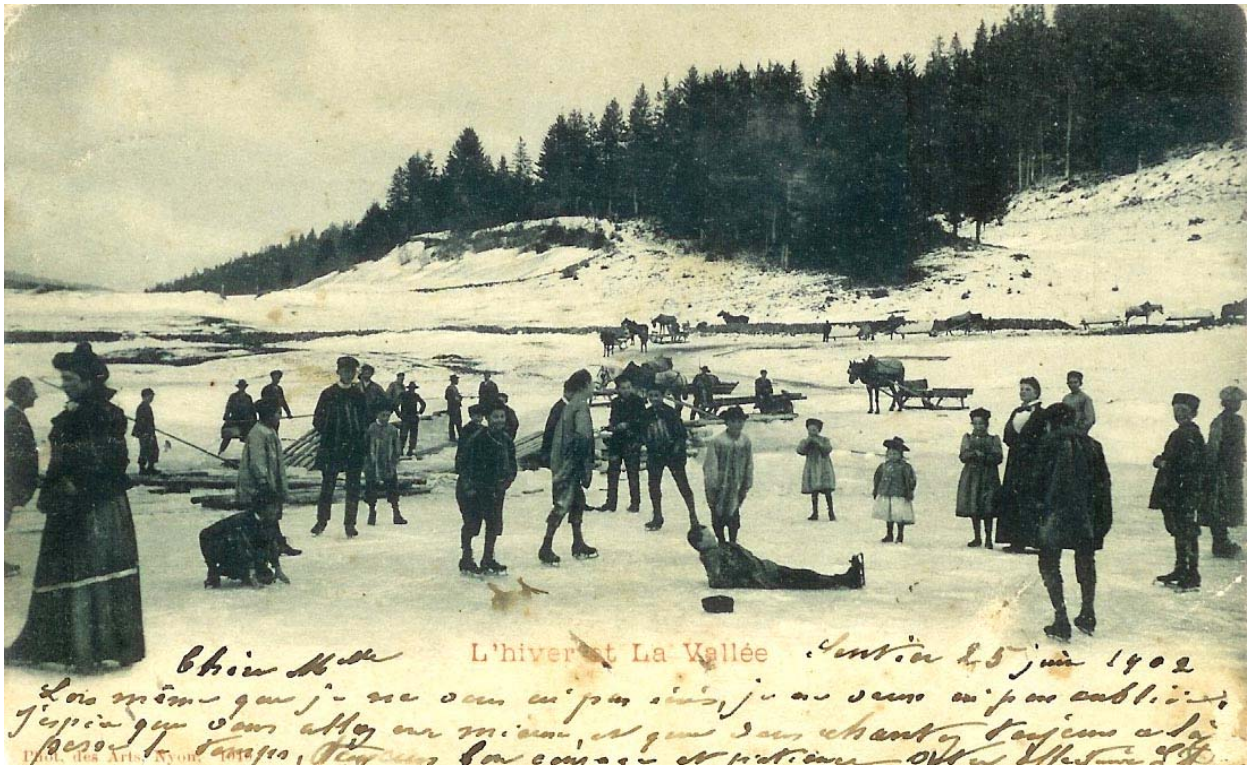 L'hiver et La Vallée
Chère Mlle Sentier 25 juin 1902
Lors même que je ne vous ai pas je ne vous ai pas oubliée
j'espère que vous allez au mieux, et que vous chantez toujours a la
temps, bon courage et patience Votre affectionnée
Phot. des Arts, Nyon.